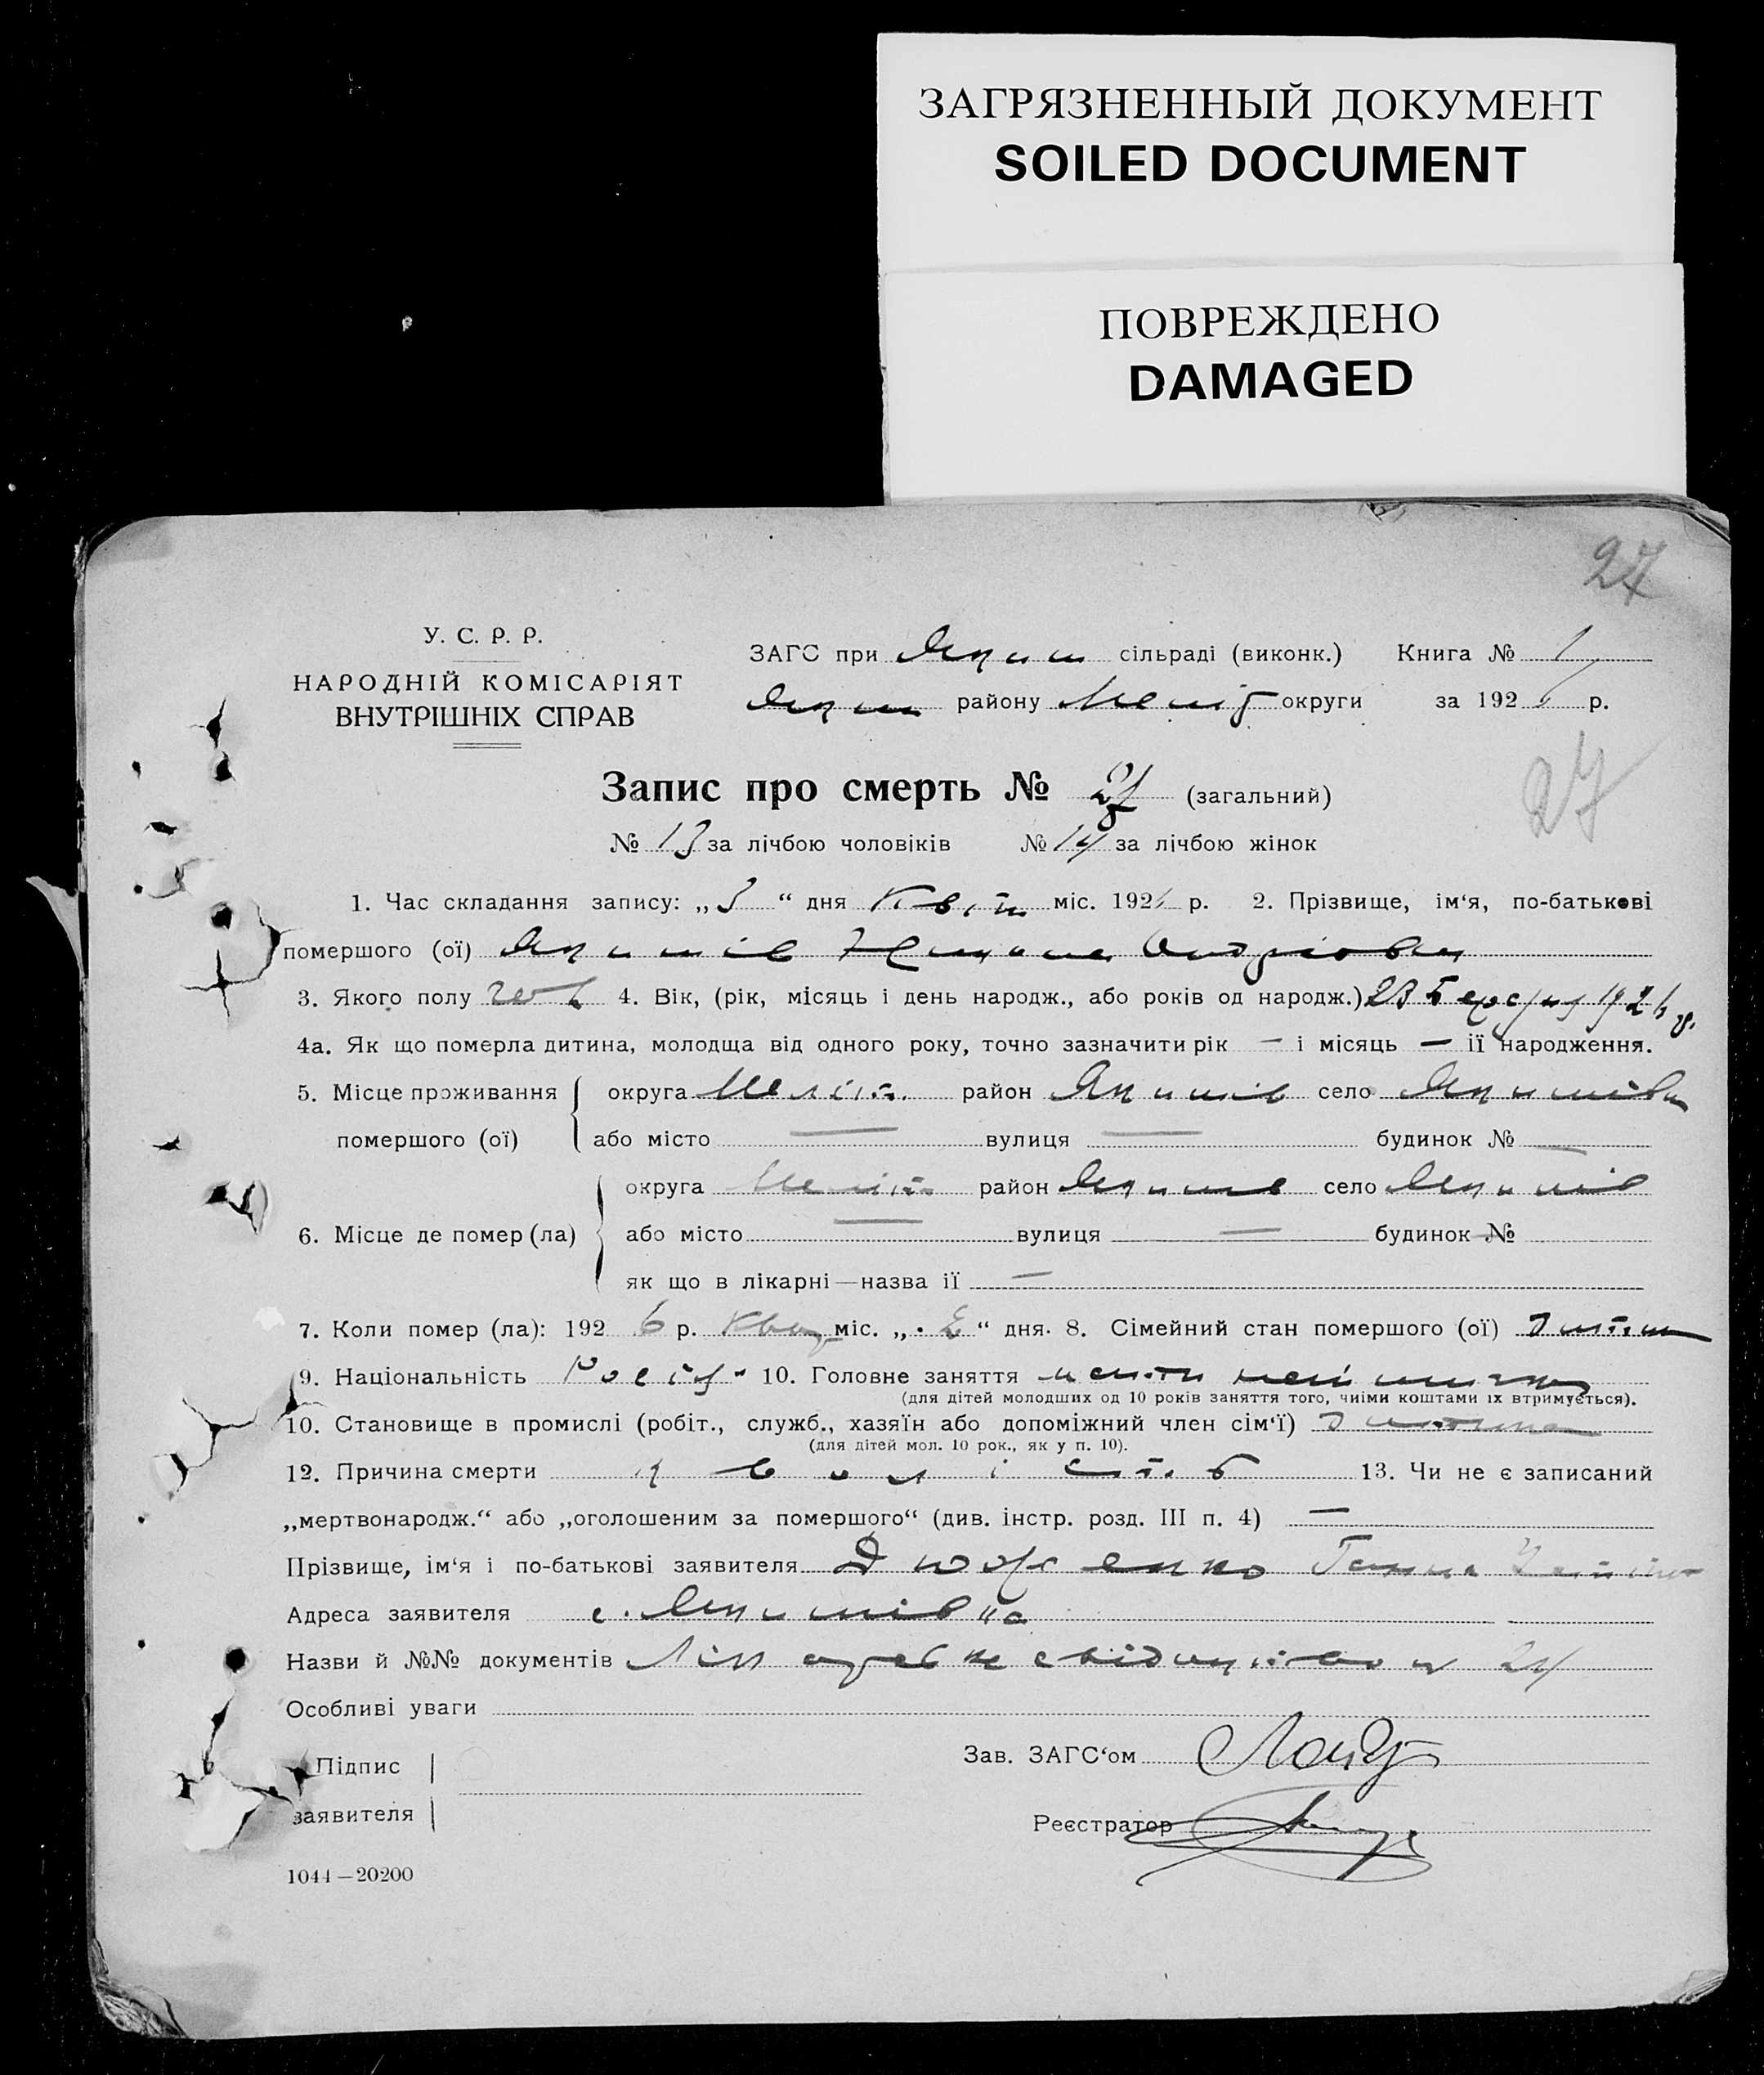 ЗАГРЯЗНЕННЫЙ ДОКУМЕНТ
SOILED DOCUMENT
ПОВРЕЖДЕНО
DAMAGED
27
У. С. Р. Р.
НАРОДНІЙ КОМІСАРІЯТ
ВНУТРІШНІХ СПРАВ
ЗАГС при Яким сільраді (виконк.) Книга № 1
Яким району Меліт округи за 192 р.
Запис про смерть № 27 (загальний)
27
№ 13 за лічбою чоловіків № 14 за лічбою жінок
1. Час складання запису: „3“ дня Квіт міс. 192 р. 2. Прізвище, ім‘я, по-батькові
помершого (ої) Якимів Андріовна
3. Якого полу 4. Вік, (рік, місяць і день народж., або років од народж.) 23 Березня 1926 р.
4а. Як що померла дитина, молодща від одного року, точно зазначити рік — і місяць — її народження.
5. Місце проживання округа Меліт. район Якимів село Якимівка
помершого (ої) або місто — вулиця — будинок № —
округа Меліт район Якимів село Якимів
6. Місце де помер (ла) або місто — вулиця — будинок №
як що в лікарні—назва її —
7. Коли помер (ла): 1926 р. міс. „ “ дня. 8. Сімейний стан помершого (ої) Дитина
9. Національність Росій 10. Головне заняття
(для дітей молодших од 10 років заняття того, чиіми коштами їх втримується).
10. Становище в промислі (робіт., служб., хазяїн або допоміжний член сім‘ї) дитина
(для дітей мол. 10 рок., як у п. 10).
12. Причина смерти кволість 13. Чи не є записаний
„мертвонародж.“ або „оголошеним за помершого“ (див. інстр. розд. III п. 4) —
Прізвище, ім‘я і по-батькові заявителя Ганна
Адреса заявителя с. Якимівка
Назви й №№ документів Лікарське свідоцтво № 24
Особливі уваги
Підпис
заявителя
Зав. ЗАГС‘ом
Реєстратор
1044—20200